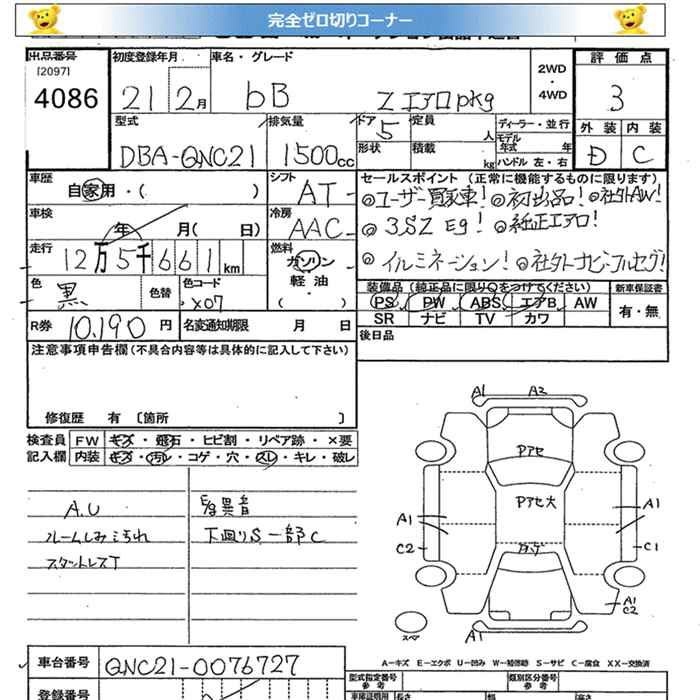 完全ゼロ切りコーナー
出品番号 初度登録年月 車名・グレード 評価点
[2097]
4086 21 2月 bB Zエアロpkg 2WD・4WD 3
型式 排気量 ドア 5 定員 人 ディーラー・並行 外装 内装
DBA-QNC21 1500cc 形状 積載 kg モデル年式 年 ハンドル 左・右 D C
車歴 シフト セールスポイント(正常に機能するものに限ります)
自家用・( ) AT ◎ユーザー買取車! ◎初出品! ◎社外AW!
車検 冷房 ◎3SZ Eg! ◎純正エアロ!
年 月( 日) AAC
走行 燃料 ◎イルミネーション! ◎社外ナビ・フルセグ!
12万5千661km ガソリン
色 色替 色コード 軽油 装備品(純正品に限り○をつけてください) 新車保証書
黒 X07 ・( ) PS PW ABS エアB AW 有・無
R券 10,190円 名変通知期限 月 日 SR ナビ TV カワ
注意事項申告欄(不具合内容等は具体的に記入して下さい) 後日品
修復歴 有 〔箇所 〕
検査員 FW キズ・飛石・ヒビ割・リペア跡・×要
記入欄 内装 キズ・汚レ・コゲ・穴・スレ・キレ・破レ
A1 A2
Pアセ
A.U Eg異音 Pアセ大 A1
ルームしみ汚れ 下廻りS 一部C A1
スタットレスT C2 C1
A1
C2
スペア A1
A-キズ E-エクボ U-凹み W-補修跡 S-サビ C-腐食 XX-交換済
車台番号 QNC21-0076727
型式指定番号 類別区分番号
参考 参考
登録番号 車庫証明用 長さ 幅 高さ